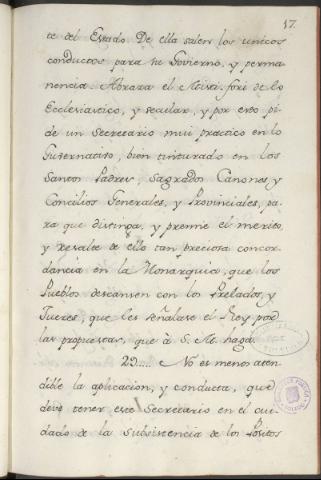 17.
te del Estado. De ella salen los unicos
conductos para su Govierno, y perma-
nencia. Abraza el Misti-fori de lo
Ecclesiastico, y secular, y por esto pi-
de un Secretario mui practico en lo
Gubernativo, bien tinturado en los
Santos Padres, Sagrados Canones, y
Concilios Generales, y Provinciales, pa-
ra que distinga, y premie el merito,
y resulte de ello tan preciosa concor-
dancia en la Monarquia, que los
Pueblos descansen con los Prelados, y
Jueces, que les señalase el Rey por
las propuestas, que à S. M. haga.
29.... No es menos aten-
dible la aplicacion, y conducta, que
deve tener este Secretario en el cui-
dado de la subsistencia de los Positos